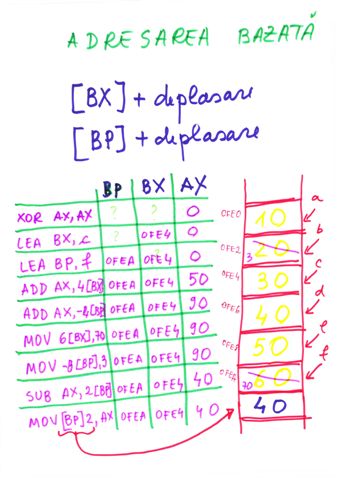 ADRESAREA BAZATĂ
[BX] + deplasare
[BP] + deplasare
BP BX AX
XOR AX,AX ? ? 0
LEA BX, c ? 0FE4 0
LEA BP, f 0FEA 0FE4 0
ADD AX, 4[BX] 0FEA 0FE4 50
ADD AX, -4[BP] 0FEA 0FE4 90
MOV 6[BX], 70 0FEA 0FE4 90
MOV -8[BP], 3 0FEA 0FE4 90
SUB AX, 2[BP] 0FEA 0FE4 40
MOV [BP]2, AX 0FEA 0FE4 40
a
0FE0 10
b
0FE2 3 20
c
0FE4 30
d
0FE6 40
e
0FE8 50
f
0FEA 70 60
40